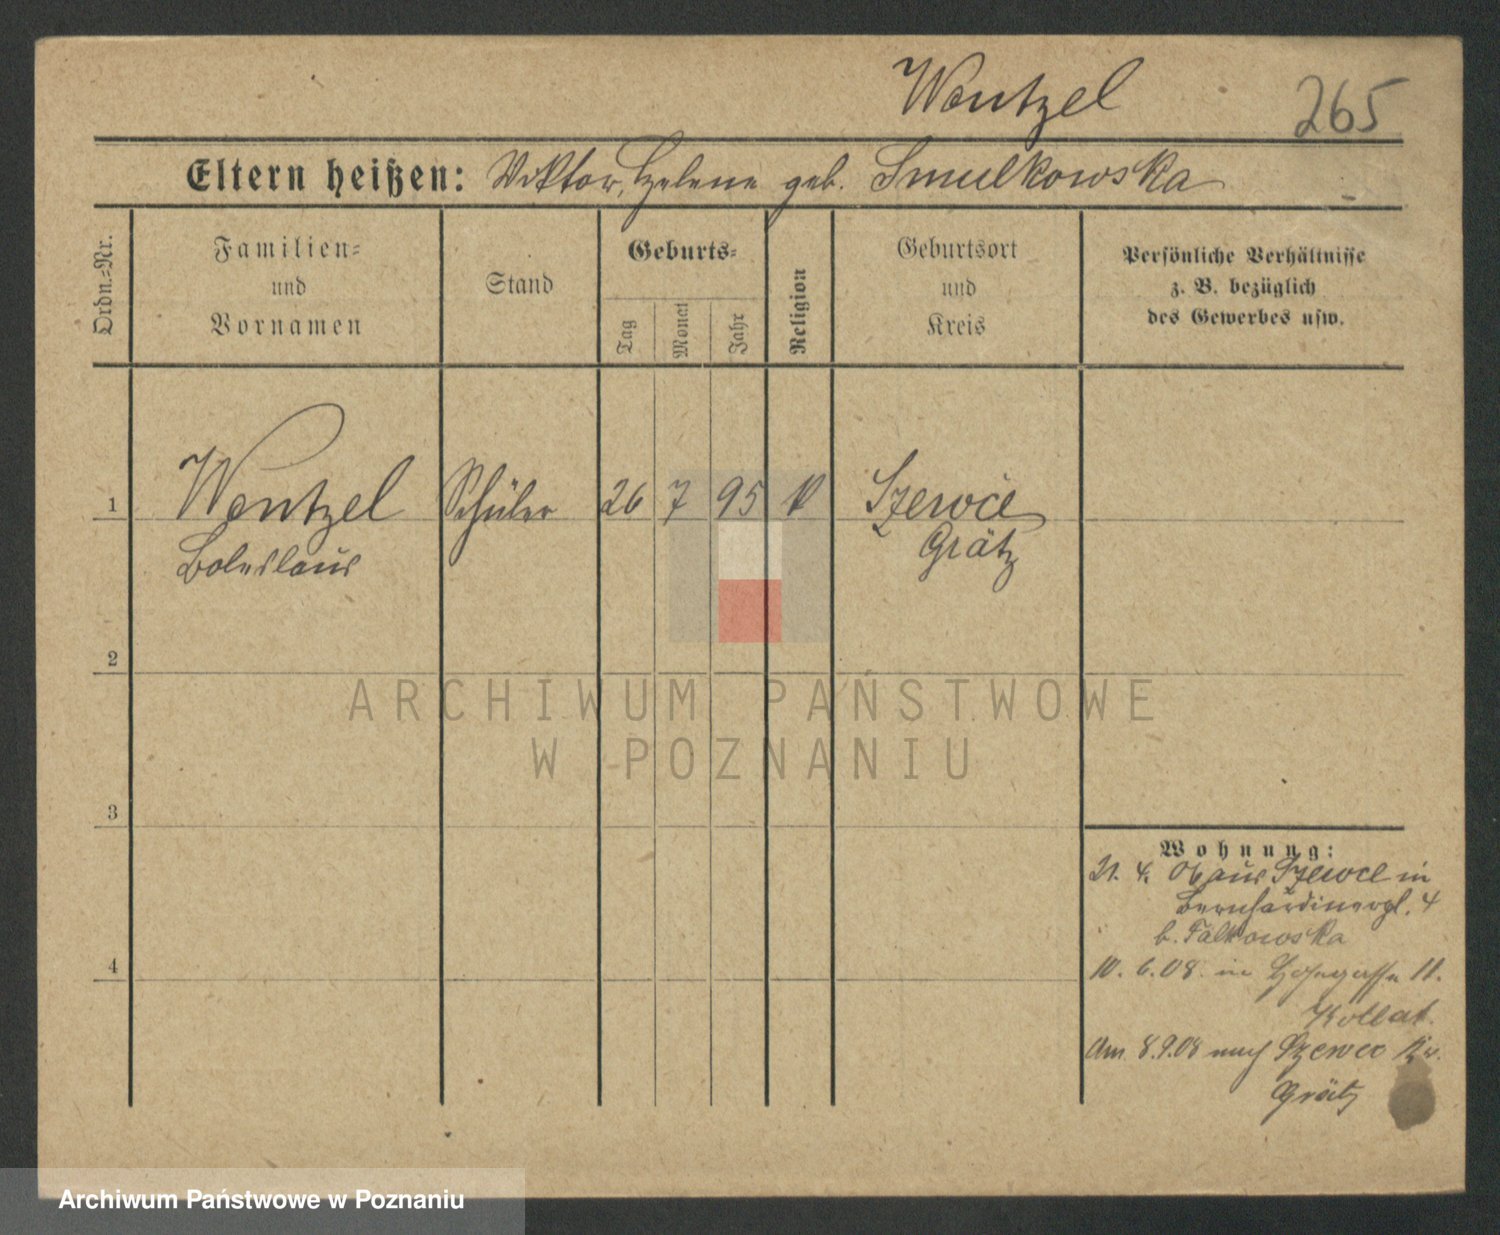 Wentzel
265
Eltern heißen: Viktor, Helene geb. Smulkowska
Ordn.-Nr.
Familien-
und
Vornamen
Stand
Geburts-
Tag
Monat
Jahr
Religion
Geburtsort
und
Kreis
Persönliche Verhältnisse
z. B. bezüglich
des Gewerbes usw.
1
Wentzel
Boleslaus
Schüler
26
7
95
K
Szewce
Grätz
2
3
4
Wohnung:
21. 4. 06 aus Szewce in
Bernhardinergl. 4
b. Falkowska
10. 6. 08. in 11.
Kollat.
Am 8.9.08 nach Szewce Kr.
Grätz
ARCHIWUM PAŃSTWOWE
W POZNANIU
Archiwum Państwowe w Poznaniu